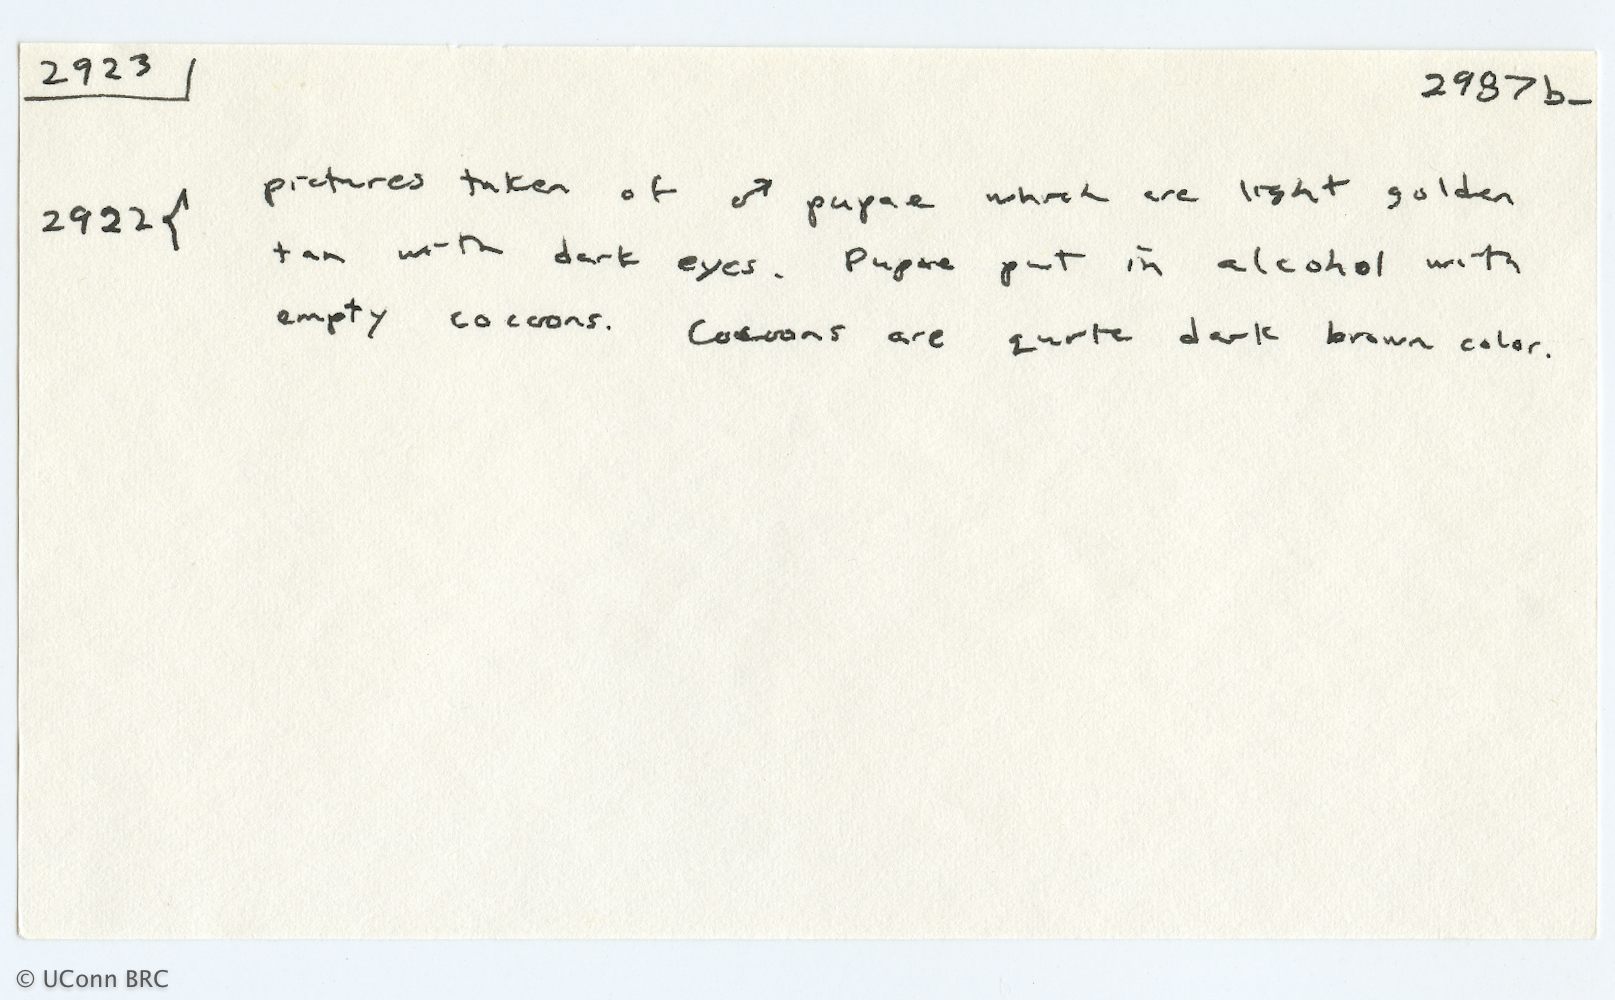 2923
2987b
2922{ pictures taken of ♂ pupae which are light golden
tan with dark eyes. Pupae put in alcohol with
empty cocoons. Cocoons are quite dark brown color.
© UConn BRC